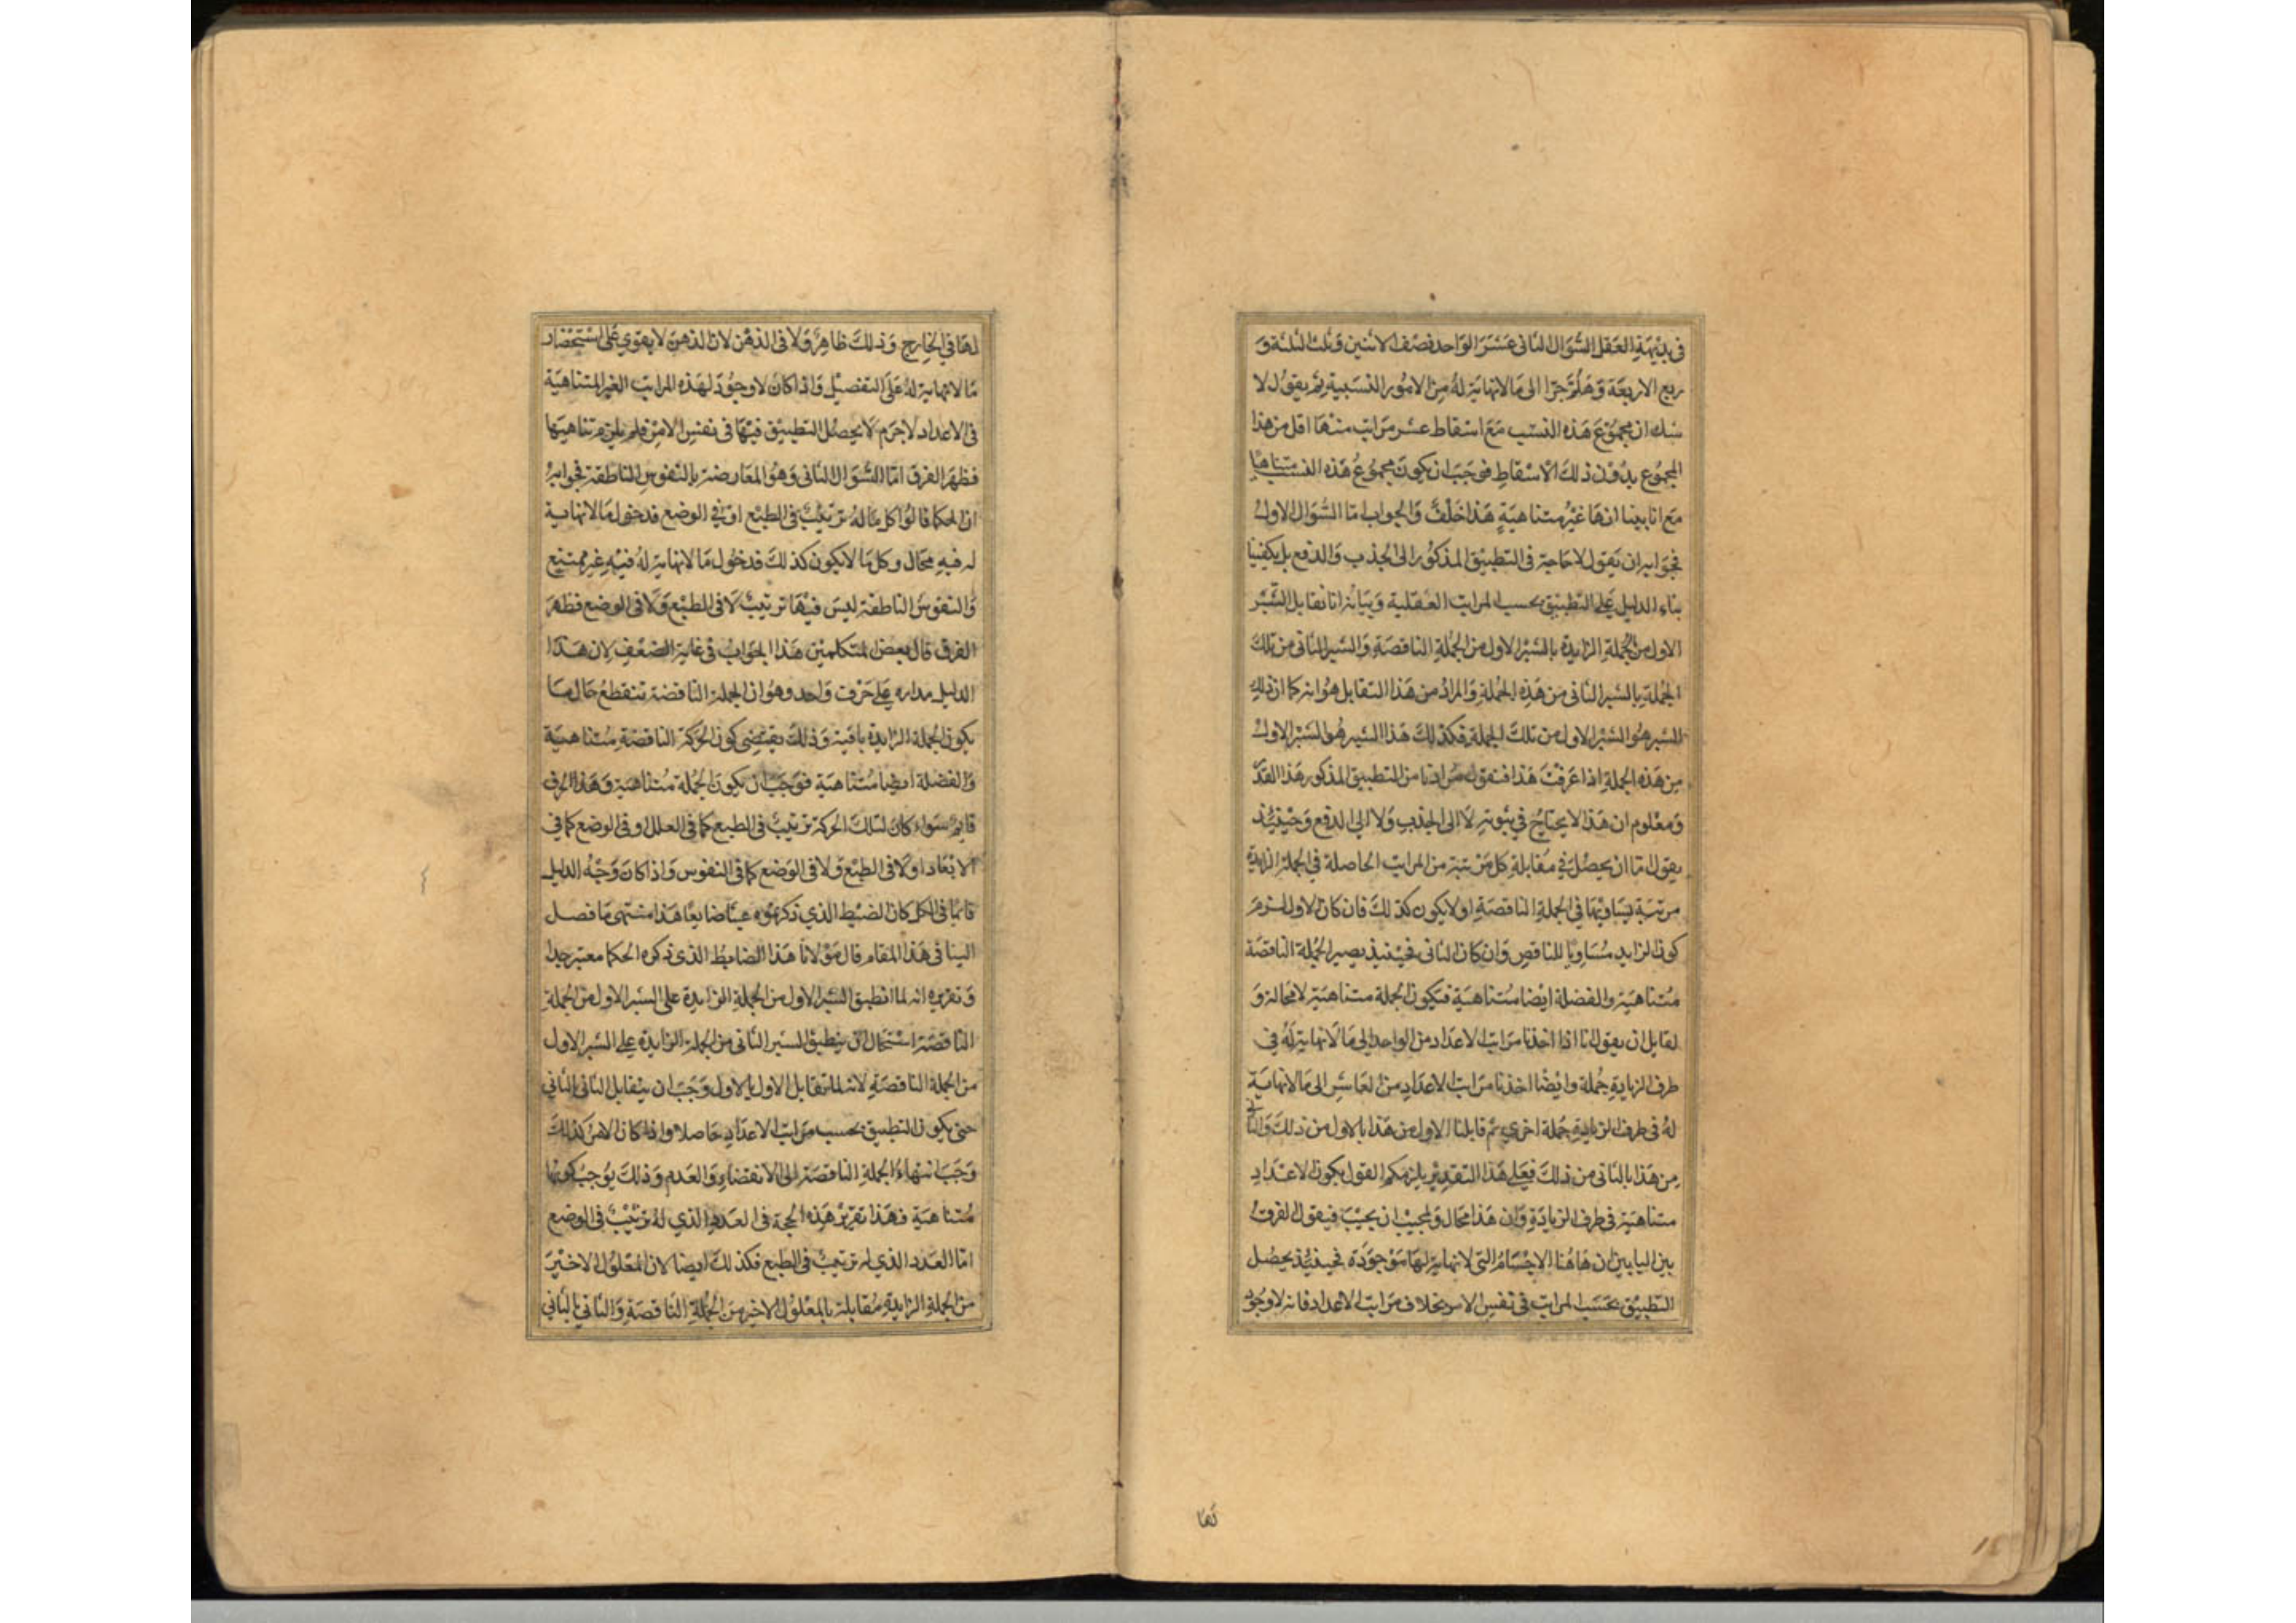 في بديهة العقل السؤال الثاني عشر الواحد نصف الاثنين وثلث الثلثة و
ربع الاربعة وهلم جرا الى ما لا نهاية له من الامور النسبية ثم يقول لا
شك ان مجموع هذه النسب مع اسقاط عشر مراتب منها اقل من هذا
المجموع بدون ذلك الاسقاط فوجب ان يكون مجموع هذه النسب متناهيا
مع انا بينا انها غير متناهية هذا خلف والجواب اما السؤال الاول
فجوابه ان نقول لا حاجة في التطبيق المذكور الى الجذب والدفع بل يكفينا
بناء الدليل على التطبيق بحسب المراتب العقلية وبيانه انا نقابل الشبر
الاول من الجملة الزايدة بالشبر الاول من الجملة الناقصة والشبر الثاني من تلك
الجملة بالشبر الثاني من هذه الجملة والمراد من هذا التقابل هو انه كما ان ذلك
الشبر هو الشبر الاول من تلك الجملة فكذلك هذا الشبر هو الشبر الاول
من هذه الجملة اذا عرفت هذا فنقول مرادنا من التطبيق المذكور هذا القدر
ومعلوم ان هذا لا يحتاج في ثبوته لا الى الجذب ولا الى الدفع وحينئذ
يقول اما ان يحصل في مقابلة كل مرتبة من المراتب الحاصلة في الجملة الزايدة
مرتبة يساويها في الجملة الناقصة او لا يكون كذلك فان كان الاول لزم
كون الزايد مساويا للناقص وان كان الثاني فحينئذ يصير الجملة الناقصة
متناهية والفضلة ايضا متناهية فيكون الجملة متناهية لا محالة و
لقايل ان يقول انا اذا اخذنا مراتب الاعداد من الواحد الى ما لا نهاية له في
طرف الزيادة جملة وايضا اخذنا مراتب الاعداد من العاشر الى ما لا نهاية
له في طرف الزيادة جملة اخرى ثم قابلنا الاول من هذا بالاول من ذلك والثاني
من هذا بالثاني من ذلك فعلى هذا التقدير يلزمكم القول بكون الاعداد
متناهية في طرف الزيادة وان هذا محال ولمجيب ان يجيب فيقول الفرق
بين البابين ان هاهنا الاجسام التي لا نهاية لها موجودة فحينئذ يحصل
التطبيق بحسب المراتب في نفس الامر بخلاف مراتب الاعداد فانه لا وجود
لها
لها في الخارج وذلك ظاهر ولا في الذهن لان الذهن لا يقوي على استحضار
ما لا نهاية له على التفصيل واذا كان لا وجود لهذه المراتب الغير المتناهية
في الاعداد لا جرم لا يحصل التطبيق فيها في نفس الامر فلم يلزم تناهيها
فظهر الفرق اما السؤال الثاني وهو المعارضة بالنفوس الناطقة فجوابه
ان الحكما قالوا كل ما له ترتيب في الطبع او في الوضع فدخول ما لا نهاية
له فيه محال وكل ما لا يكون كذلك فدخول ما لا نهاية له فيه غير ممتنع
والنفوس الناطقة ليس فيها ترتيب لا في الطبع ولا في الوضع فظهر
الفرق قال بعض المتكلمين هذا الجواب في غاية الضعف لان هذا
الدليل مداره على حرف واحد وهو ان الجملة الناقصة تنقطع حال ما
يكون الجملة الزايدة باقية وذلك يقتضي كون الحركة الناقصة متناهية
والفضلة ايضا متناهية فوجب ان يكون الجملة متناهية وهذا الحرف
قايم سواء كان لتلك الحركة ترتيب في الطبع كما في العلل او في الوضع كما في
الابعاد او لا في الطبع ولا في الوضع كما في النفوس واذا كان وجه الدليل
قائما في الكل كان الضبط الذي ذكرتموه عبثا ضايعا هذا منتهى ما فصل
الينا في هذا المقام قال مولانا هذا الضابط الذي ذكره الحكما معتبر جدا
وتقريره انه لما انطبق الشبر الاول من الجملة الزايدة على الشبر الاول من الجملة
الناقصة استحال ان ينطبق الشبر الثاني من الجملة الزايدة على الشبر الاول
من الجملة الناقصة لانه لما تقابل الاول بالاول وجب ان يتقابل الثاني بالثاني
حتى يكون التطبيق بحسب مراتب الاعداد حاصلا واذا كان الامر كذلك
وجب انتهاء الجملة الناقصة الى الانقضاء والعدم وذلك يوجب كونها
متناهية فهذا تقرير هذه الحجة في العدد الذي له ترتيب في الوضع
اما العدد الذي له ترتيب في الطبع فكذلك ايضا لان المعلول الاخير
من الجملة الزايدة مقابلة بالمعلول الاخير من الجملة الناقصة والثاني بالثاني